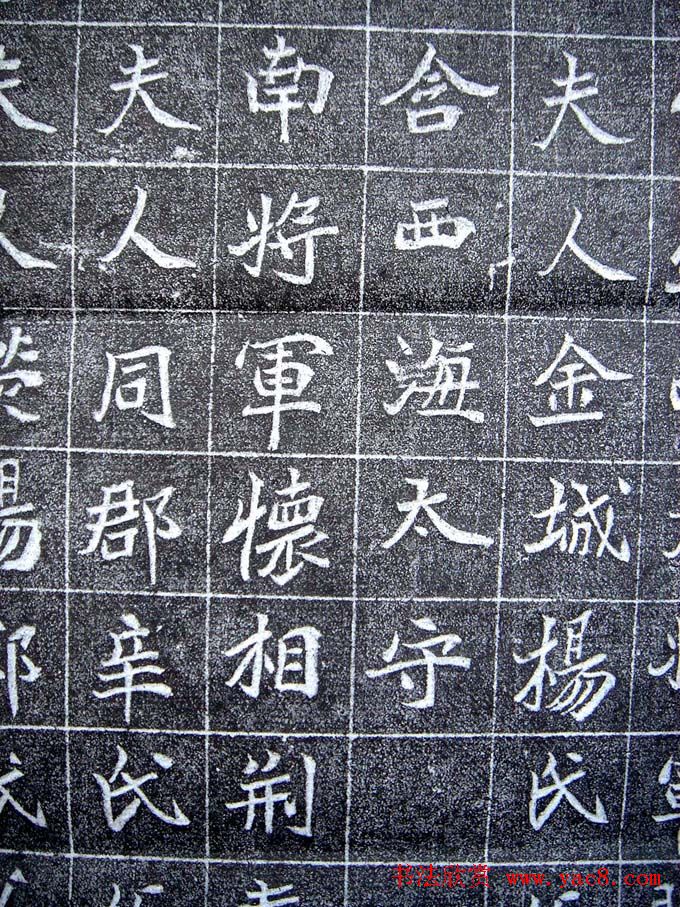 夫人金城楊氏
含西海太守
南將軍懷相荊
夫人同郡辛氏
夫人
书法欣赏 www.yac8.com